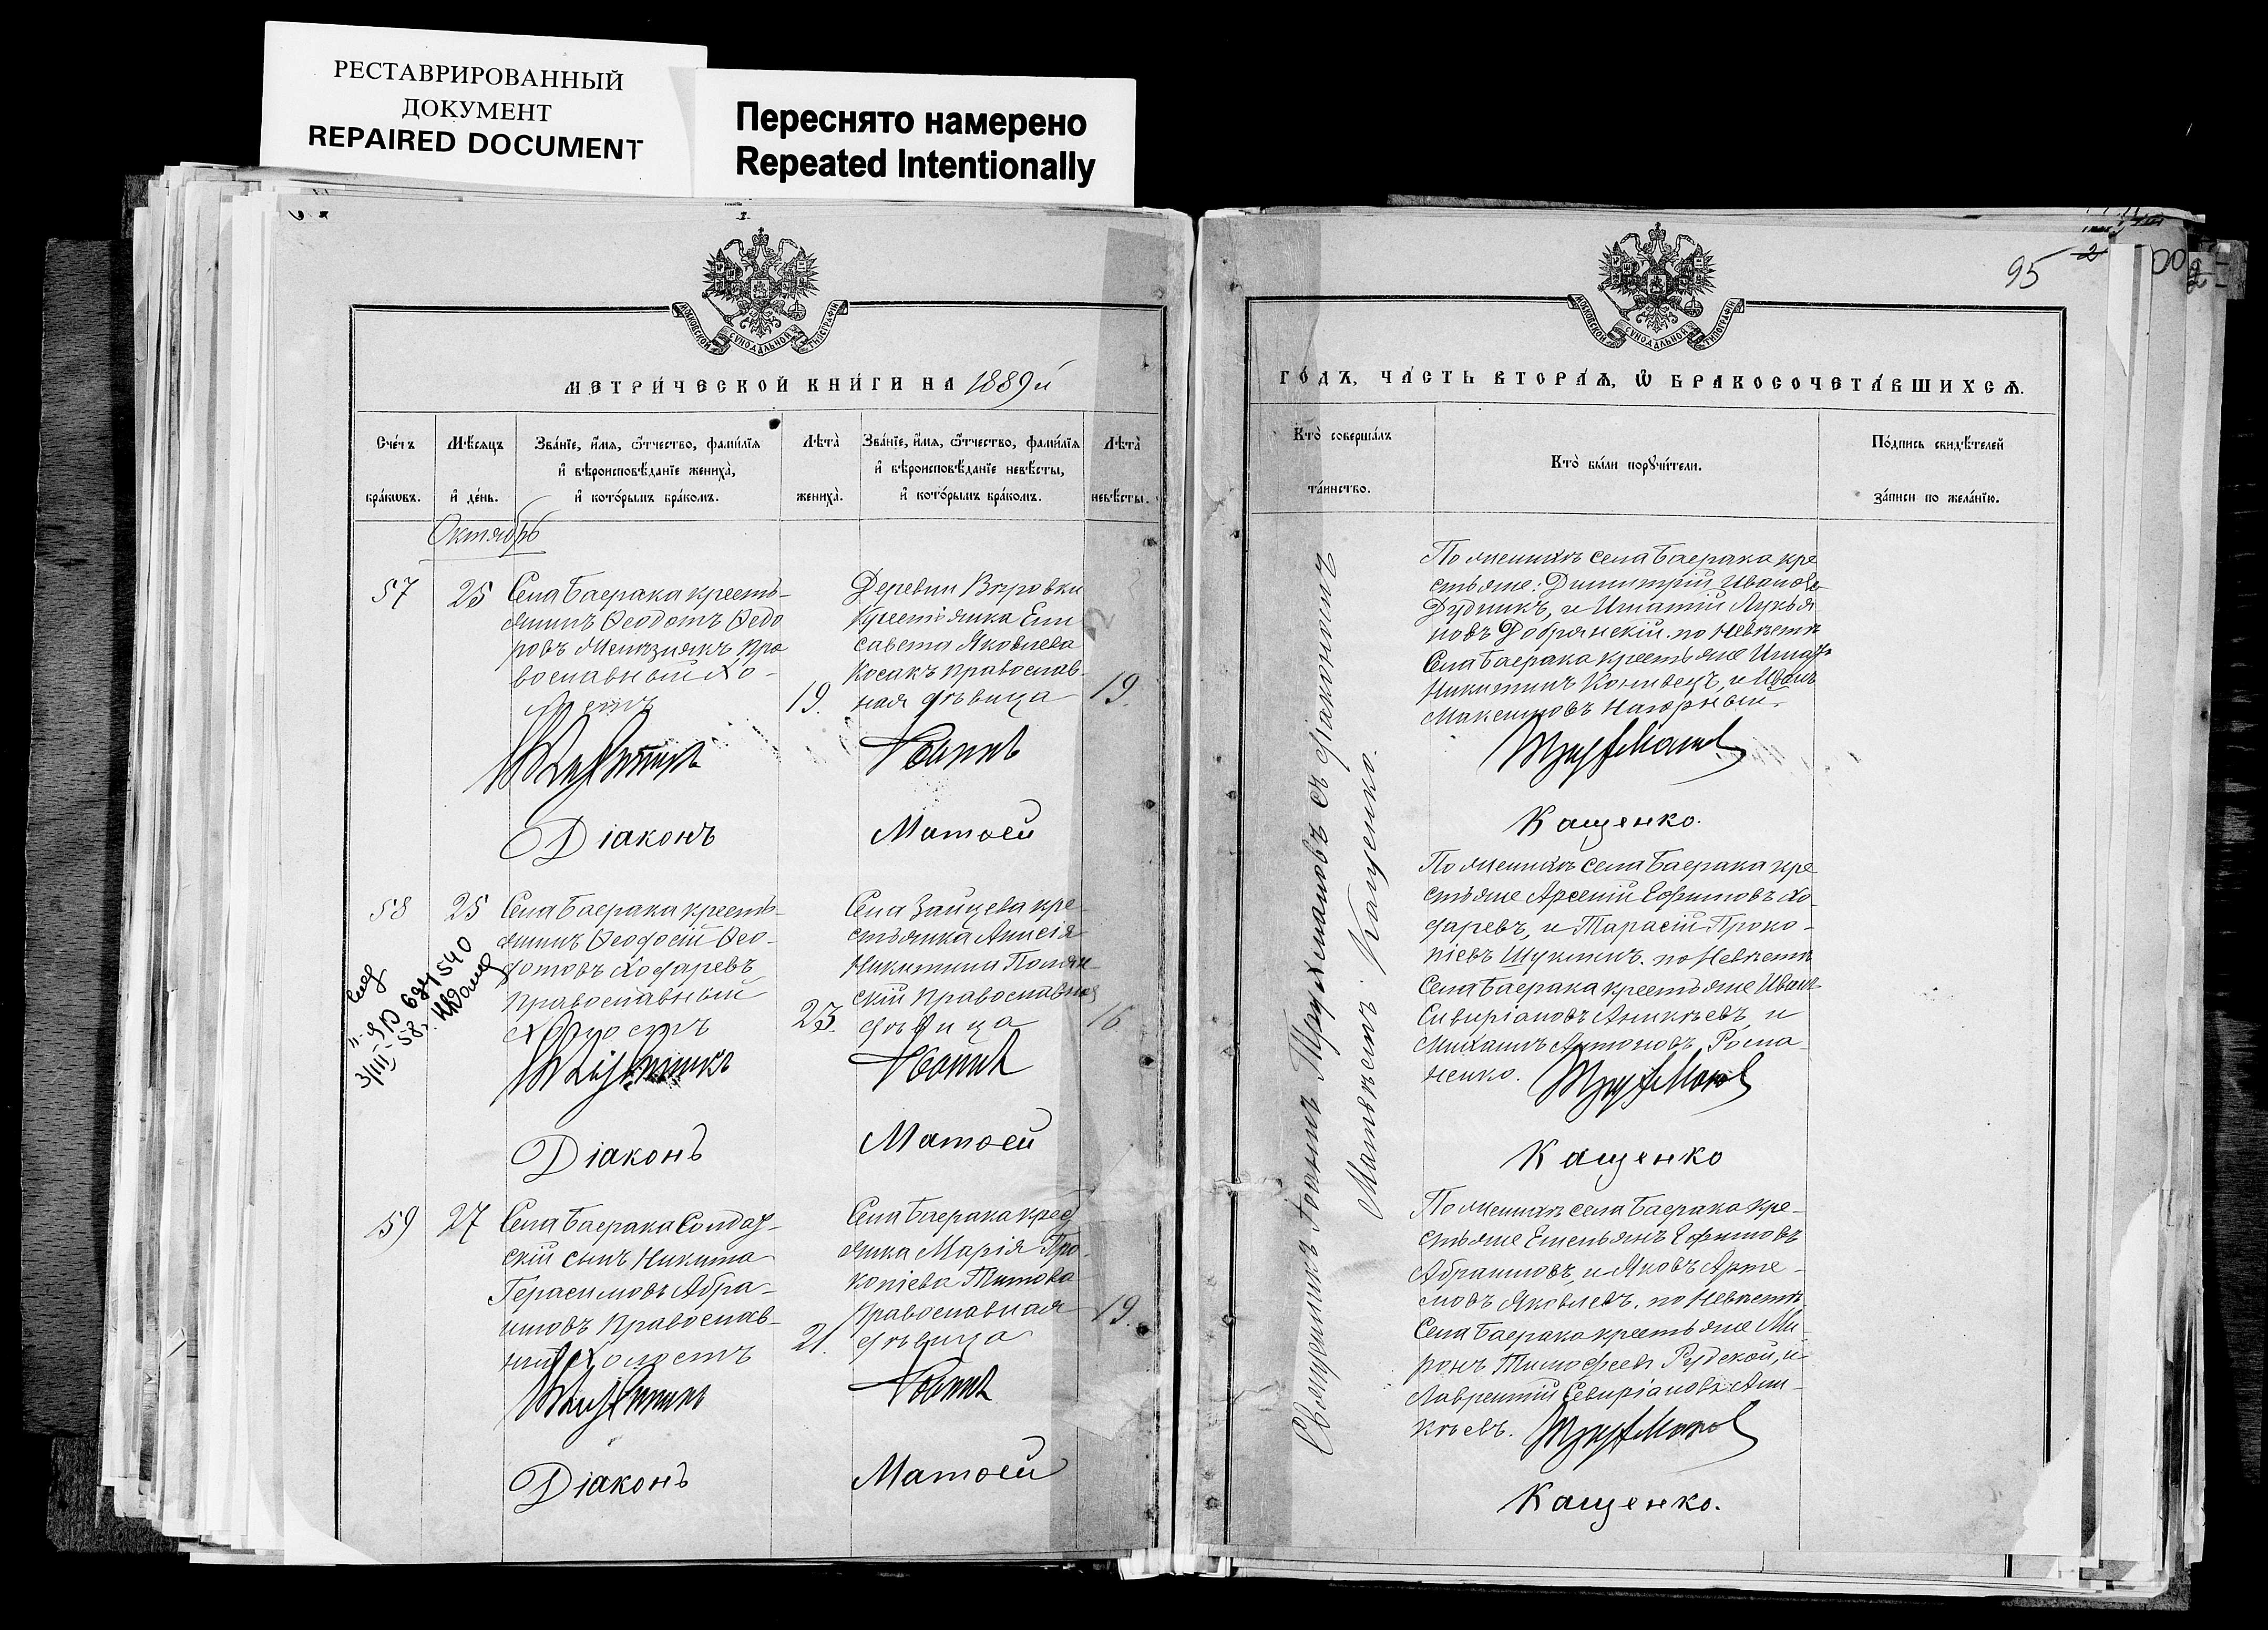 РЕСТАВРИРОВАННЫЙ
ДОКУМЕНТ
REPAIRED DOCUMENT
Переснято намерено
Repeated Intentionally
МОСКОВСКОЙ СУНОДАЛЬНОЙ ТИПОГРАФІИ
МЕТРИ́ЧЕСКОЙ КНИ́ГИ НА 1889й
Сче́тъ
бра́кѡвъ.
Мѣ́сяцъ
и҆ де́нь.
Зва́нїе, и҆́мѧ, ѻ҆́тчество, фами́лїя
и҆ вѣроисповѣ́данїе жениха̀,
и҆ кото́рымъ бра́комъ.
Лѣта̀
жениха̀.
Зва́нїе, и҆́мѧ, ѻ҆́тчество, фами́лїя
и҆ вѣроисповѣ́данїе невѣ́сты,
и҆ кото́рымъ бра́комъ.
Лѣта̀
невѣ́сты.
Октябрь
57
25
Села Баерака кресть-
янинъ Ѳеодотъ Ѳедо
ровъ Мельзнякъ Пра
вославный Хо-
19.
Деревни Вѣровки
Крестьянка Ели
савета Яковлева
Косакъ православ-
ная дѣвица
19.
Діаконъ
Матѳей
58
25
Села Баерака кресть-
янинъ Ѳеодосій Ѳео-
дотовъ Ходаревъ
православный
Холостъ
23.
Села Зайцева кре-
стьянка Анисія
Никитина Полян-
скій Православная
дѣвица
16
Діаконъ
Матѳей
59
27
Села Баерака Солдат-
скій сынъ Никита
Герасимовъ Абра-
имовъ Православ-
ный Холостъ
21.
Села Баерака крест
янка Марія Про-
копіева Титова
Православная
дѣвица
19.
Діаконъ
Матѳей
95
2
МОСКОВСКОЙ СУНОДАЛЬНОЙ ТИПОГРАФІИ
ГО́ДЪ, ЧА́СТЬ ВТОРА́Ѧ, Ѽ БРАКОСОЧЕТА́ВШИХСѦ.
Кто̀ соверша́лъ
та́инство.
Кто̀ бы́ли порꙋчи́тели.
По́дпись свидѣ́телей
за́писи по жела́нїю.
Священникъ Іоаннъ Трухмановъ съ діакономъ
Матвѣемъ Кащенко.
По женихѣ села Баерака кре
стьяне: Димитрій Ивановъ
Дудникъ, и Игнатій Лукья
новъ Добрянскій. по Невѣстѣ
Села Баерака крестьяне Игнатъ
Никитинъ Коливецъ, и Иванъ
Максимовъ Нагорный.
Кащенко.
По женихѣ села Баерака кре
стьяне Арсеній Ефимовъ Хо-
даревъ, и Тарасій Проко-
піевъ Шукинъ. по Невѣстѣ
Села Баерака крестьяне Иванъ
Сивиріановъ Аникѣевъ, и
Михаилъ Антоновъ Рома-
ненко.
Кащенко
По женихѣ села Баерака кре-
стьяне Емельянъ Ефимовъ
Абраимовъ, и Яковъ Арте-
мовъ Яковлевъ. по Невѣстѣ
Села Баерака крестьяне Ми-
ронъ Тимофеевъ Рудской, и
Лаврентій Севиріановъ Ани-
кѣевъ.
Кащенко.